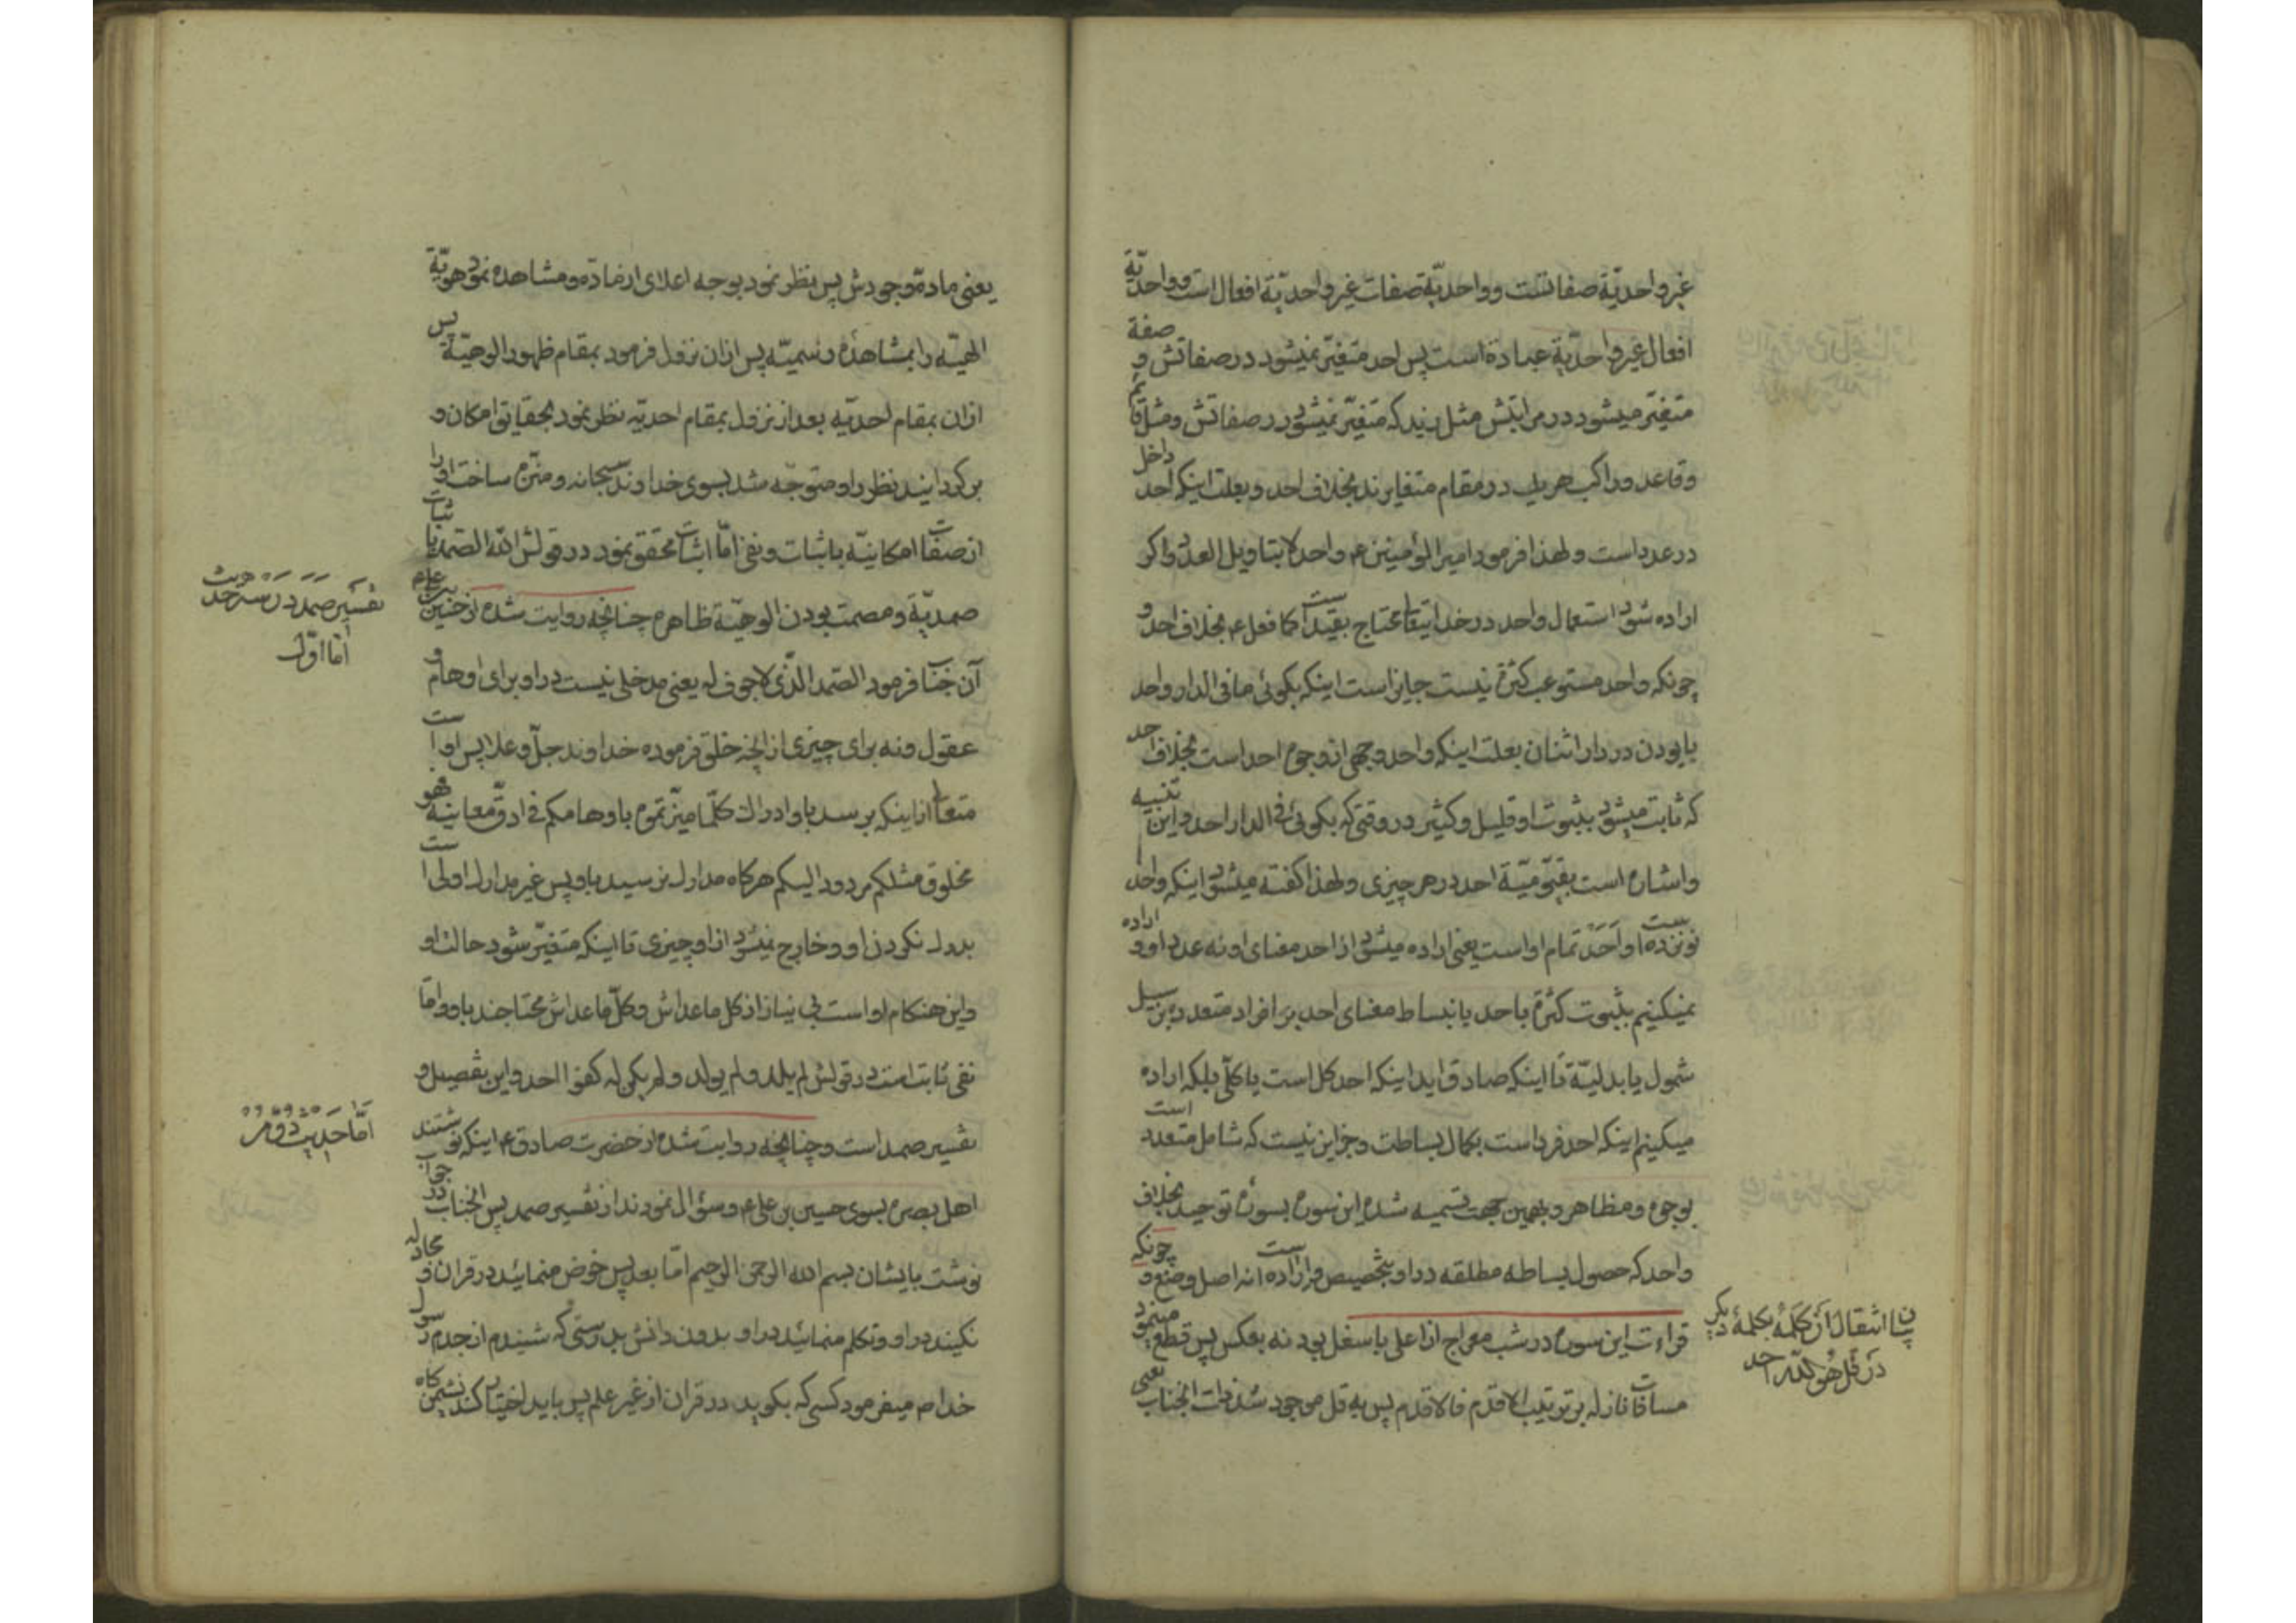 غیر واحدیّة صفاتست و واحدیّة صفات غیر واحدیّة افعال است و واحدیّة
افعال غیر واحدیّة عبادة است پس احد متغیّر نمیشود در صفاتش و صفة
متغیّر میشود در مراتبش مثل زید که متغیّر نمیشود در صفاتش و مثل قائم
و قاعد و راکب هر یک در مقام متغایرند بخلاف احد و بعلت اینکه احد داخل
در عدد است و لهذا فرمود امیر المؤمنین ع واحد لا بتاویل العدد و اکر
اراده شود استعمال واحد در خدایتعا محتاج بقید است کما فعل ع بخلاف احد و
چونکه واحد مستوعب کثرة نیست جایز است اینکه بکوئی ما فی الدار واحد
با بودن در دار اثنان بعلت اینکه واحد وجهی از وجوه احد است بخلاف احد
که ثابت میشود بثبوت او قلیل و کثیر در وقتی که بکوئی فی الدار احد و این تنبیه
و اشاره است بقیّومیّة احد در هر چیزی و لهذا کفته میشود اینکه واحد
نوزده است و احد تمام او است یعنی اراده میشود از احد معنای او نه عدد او و اراده
نمیکنیم بثبوت کثرة با حد یا نبساط معنای احد بر افراد متعدده بر سبیل
شمول یا بدلیّة تا اینکه صادق اید اینکه احد کل است یا کلّی بلکه اراده
میکینم اینکه احد فرد است بکمال بساطت و جز این نیست که شامل متعدد است
بوجوه و مظاهر و بهمین جهت تسمیه شده این سوره بسورۀ توحید بخلاف
واحد که حصول بساطه مطلقه در او بتخصیص و اراده است نه اصل وضع و چونکه
قراءت این سوره در شب معراج از اعلی باسفل بود نه بعکس پس قطع مینمود
مسافات نازله بر ترتیب الاقدم فالاقدم پس به قل موجود شد ذات انجناب یعنی
بیان انتقال از کلمۀ بکلمۀ دیگر
در قل هو الله احد
یعنی مادۀ وجودش پس نظر نمود بوجه اعلای از مادّه و مشاهده نمود هویّة
الهیّه را بمشاهدۀ رسمیّه پس از ان نزول فرمود بمقام ظهور الوهیّة پس
از ان بمقام احدیّه بعد از نزول بمقام احدیّه نظر نمود بحقایق امکان و
برکردانید نظر را و متوجّه شد بسوی خداوند سبحانه و منزّه ساخت او را
از صفات امکانیّه باثبات و نفی امّا اثبات محقق نمود در قولش الله الصمد باثبات
صمدیّة و مصمت بودن الوهیّة ظاهره چنانچه روایت شده از حسین بن علی ع
آن جناب فرمود الصمد الّذی لا جوف له یعنی مدخلی نیست در او برای اوهام و
عقول و نه برای چیزی از انچه خلق فرموده خداوند جلّ و علا پس او است
متعال از اینکه برسد باو ادراک کلّما میّزتموه باوهامکم فی ادقّ معانیه فهو
مخلوق مثلکم مردود الیکم هرکاه مدارک نرسید باو پس غیر مدارک اولی است
بدرک نکردن او و خارج نمیشود از او چیزی تا اینکه متغیّر شود حالت او
و این هنکام او است بی نیاز از کل ما عداش و کلّ ما عداش محتاجند باو و امّا
نفی ثابت است در قولش لم یلد و لم یولد و لم یکن له کفوا احد و این تفصیل و
تفسیر صمد است و چنانچه روایت شده از حضرت صادق ع اینکه نوشتند
اهل بصره بسوی حسین بن علی ع و سؤال نمودند از تفسیر صمد پس انجناب در جواب
نوشت بایشان بسم الله الرحمن الرحیم امّا بعد پس خوض منمائید در قران و مجادله
نکیند در او و تکلم منمائید در او بدون دانش بدرستی که شنیدم از جدم رسول
خدا ص میفرمود کسی که بکوید در قران از غیر علم پس باید اختیار کند نشیمن کاه
تفسیر صمد در سه حدیث
امّا اوّل
امّا حدیث دوّم